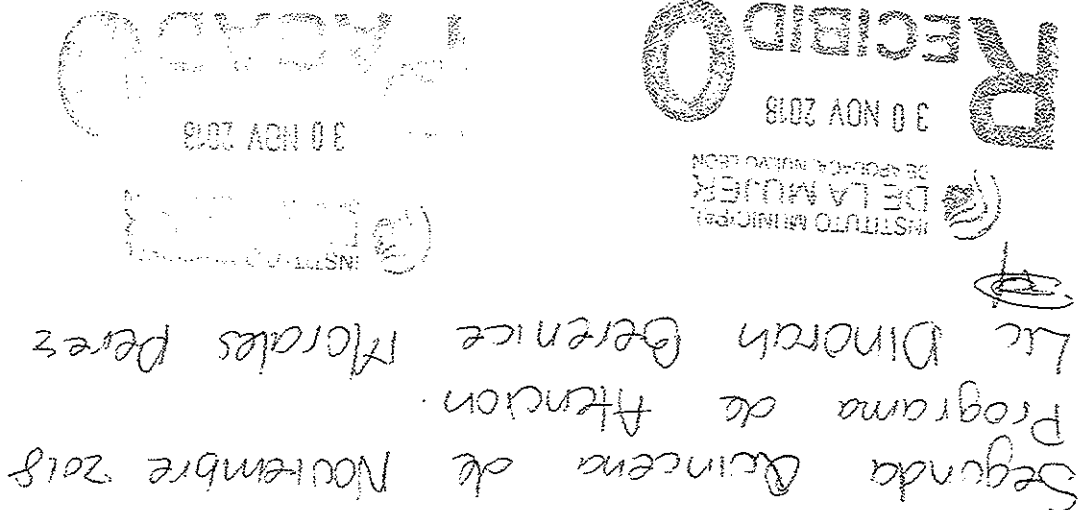 Segunda Quincena de Noviembre 2018
Programa de Atencion.
Lic Dinorah Berenice Morales Perez
INSTITUTO MUNICIPAL
DE LA MUJER
DE APODACA, NUEVO LEÓN
30 NOV 2018
RECIBIDO
INSTITUTO
30 NOV 2018